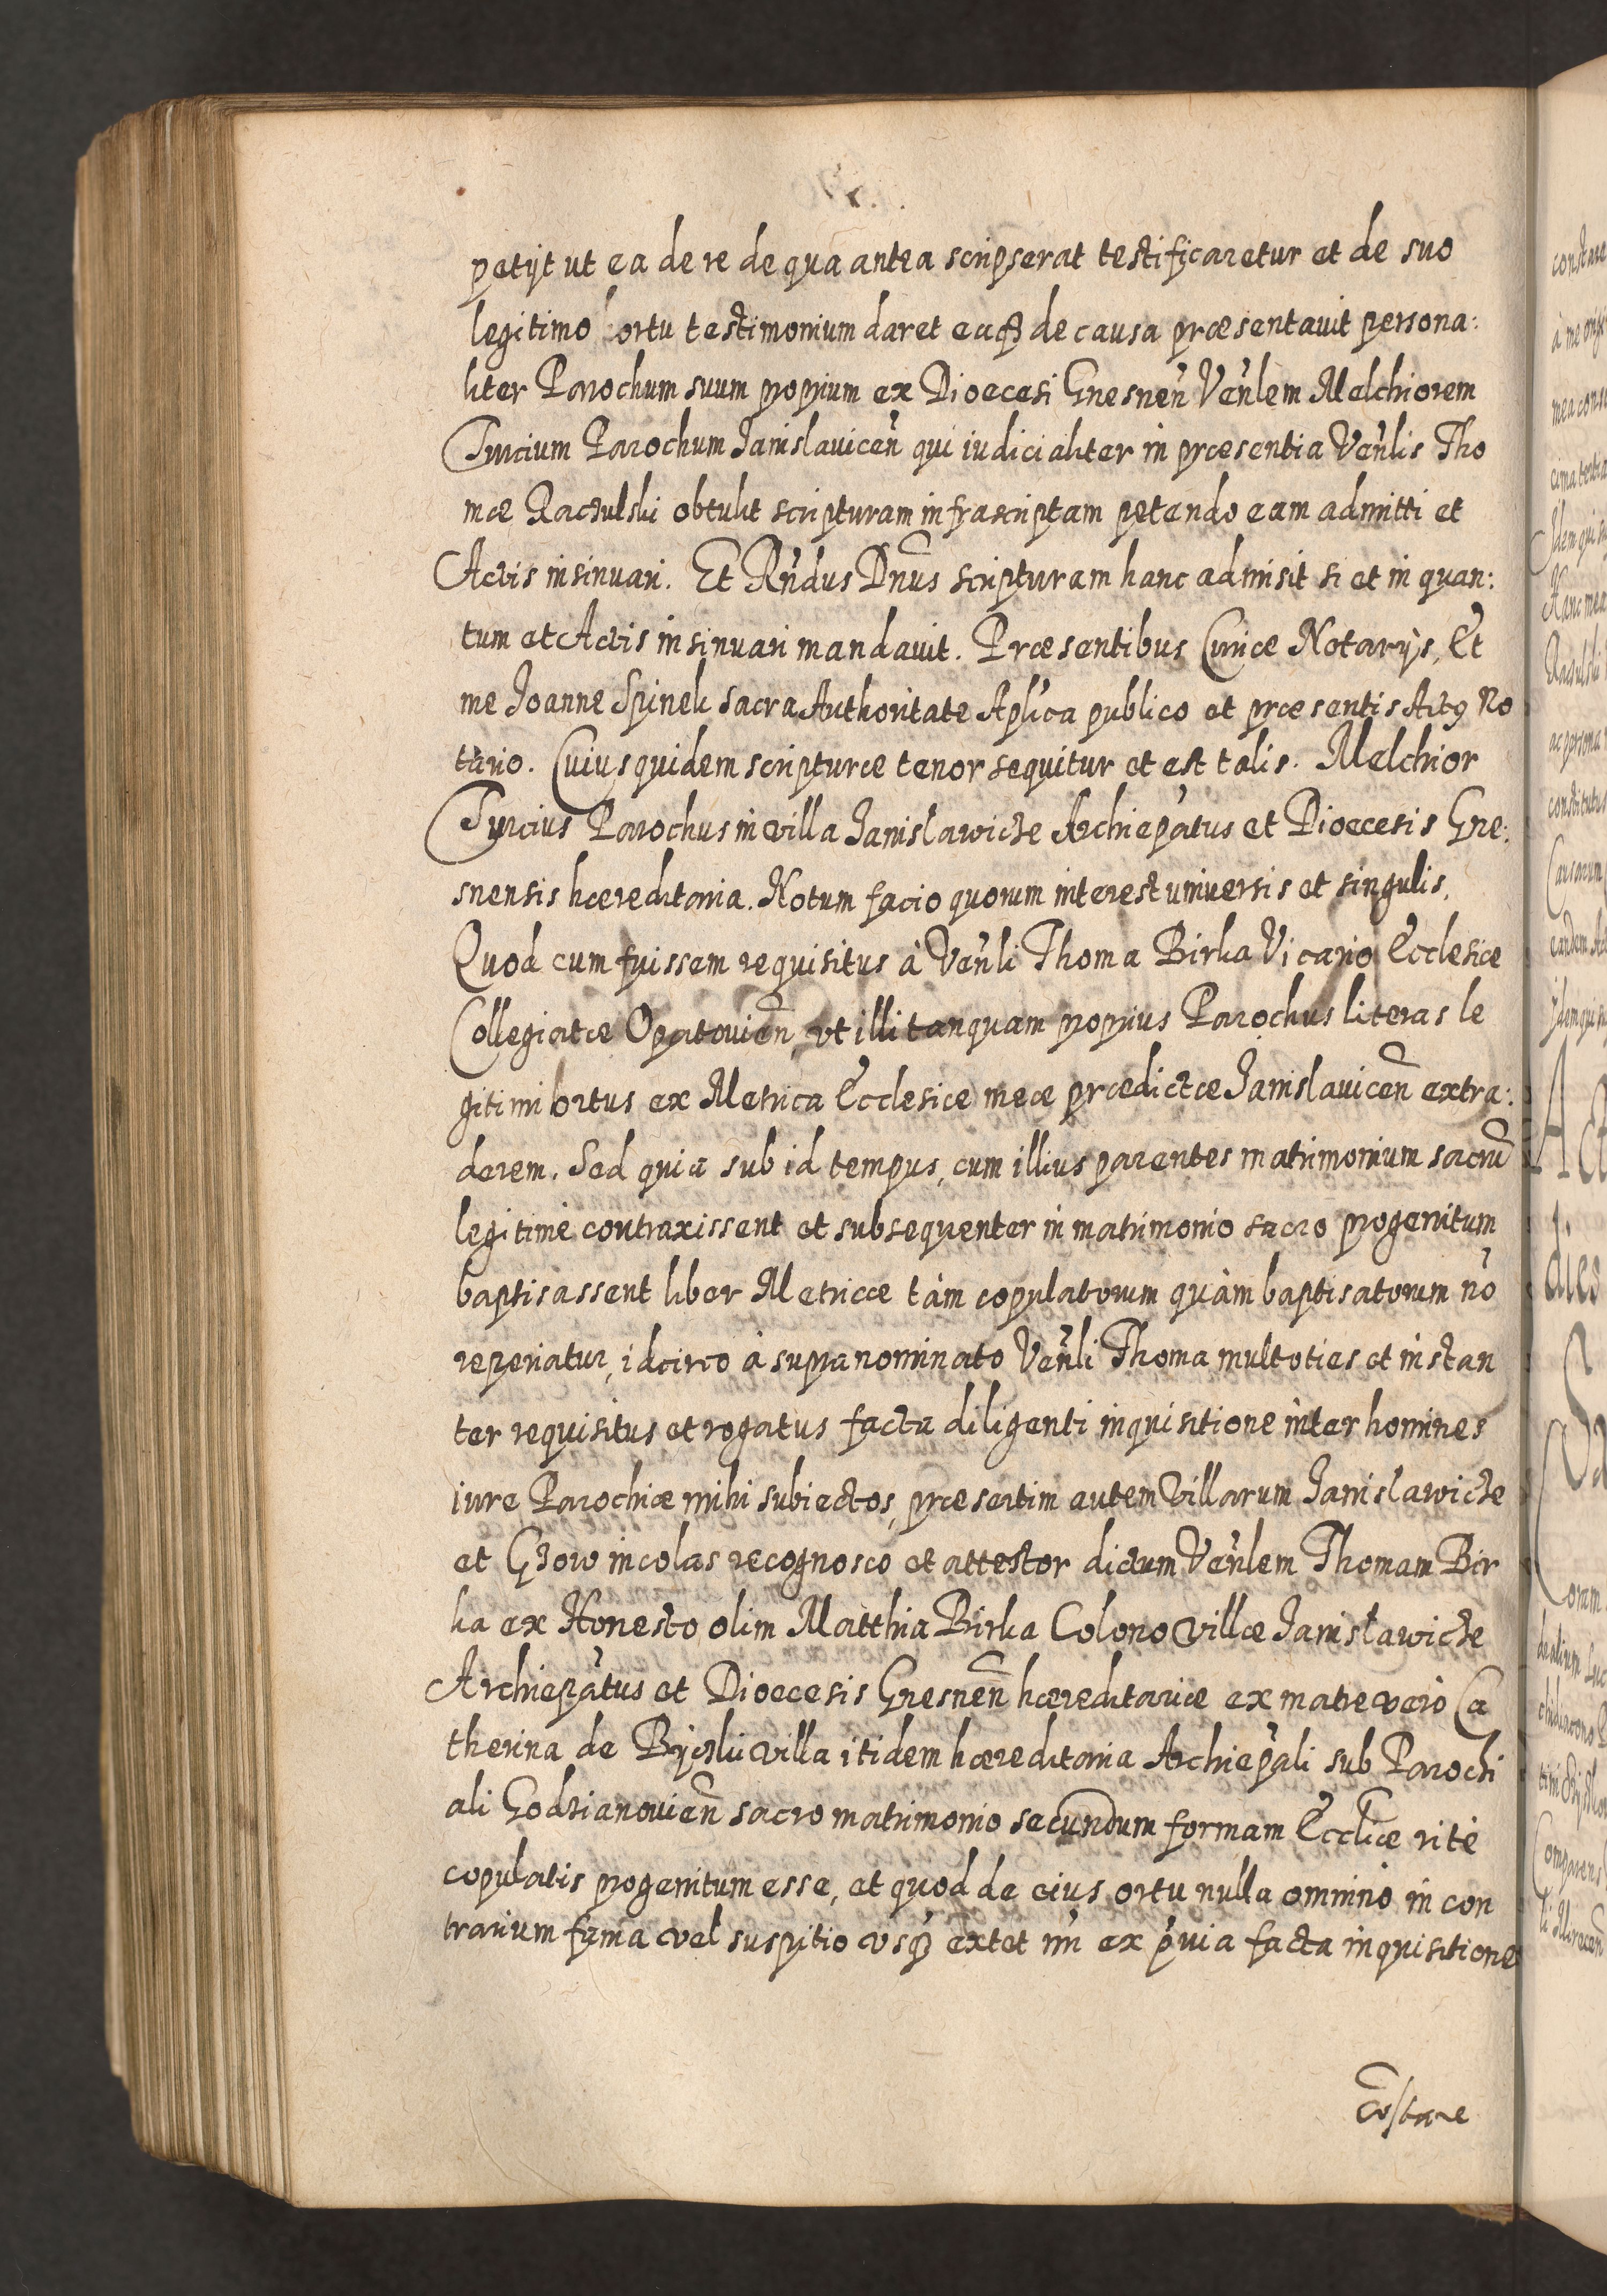 petijt ut ea de re de qua antea scripserat testificaretur et de suo
legitimo ortu testimonium daret eaqȝ de causa præsentauit persona:
liter Parochum suum proprium ex Dioecesi Gnesnen̄ Ven̄lem Melchiorem
Turcium Parochum Janislauicen̄ qui iudicialiter in præsentia Ven̄lis Tho
mæ Raczulski obtulit scripturam infrascriptam petendo eam admitti et
Actis insinuari. Et Rn̄dus Dn̄us scripturam hanc admisit si et in quan:
tum et Actis insinuari mandauit. Præsentibus Curiæ Notarijs, Et
me Joanne Spinek sacra Authoritate Aplica publico et præsentis Actꝰ No
tario. Cuius quidem scripturæ tenor sequitur et est talis. Melchior
Turcius Parochus in villa Janislawicze Archiepatus et Dioecesis Gne:
snensis hæreditaria. Notum facio quorum interest uniuersis et singulis,
Quod cum fuissem requisitus à Ven̄li Thoma Birka Vicario Ecclesiæ
Collegiatæ Opatouien̄, vt illi tanquam proprius Parochus literas le
gitimi ortus ex Metrica Ecclesiæ meæ prædictæ Janislauicen̄ extra:
derem. Sed quia sub id tempus, cum illius parentes matrimonium sacrū
legitimè contraxissent et subsequenter in matrimonio sacro progenitum
baptisassent liber Metricæ tàm copulatorum quàm baptisatorum nō
reperiatur, idcirco à supranominato Ven̄li Thoma multoties et instan
ter requisitus et rogatus facta diligenti inquisitione inter homines
iure Parochiæ mihi subiectos, præsertim autem villarum Janislawicze
et Gzow incolas recognosco et attestor dictum Ven̄lem Thomam Bir
ka ex Honesto olim Matthia Birka Colono villæ Janisławicze
Archiepatus et Dioecesis Gnesnen̄ hæreditariæ ex matre verò Ca
therina de Byczki villa itidem hæreditaria Archiepali sub Parochi
ali Godzianouien̄ sacro matrimonio secundum formam Eccliæ ritè
copulatis progenitum esse, et quod de eius ortu nulla omninò in con
trarium fama vel suspitio vsqȝ extet im̄ ex p̄uia facta inquisitione
cōstare